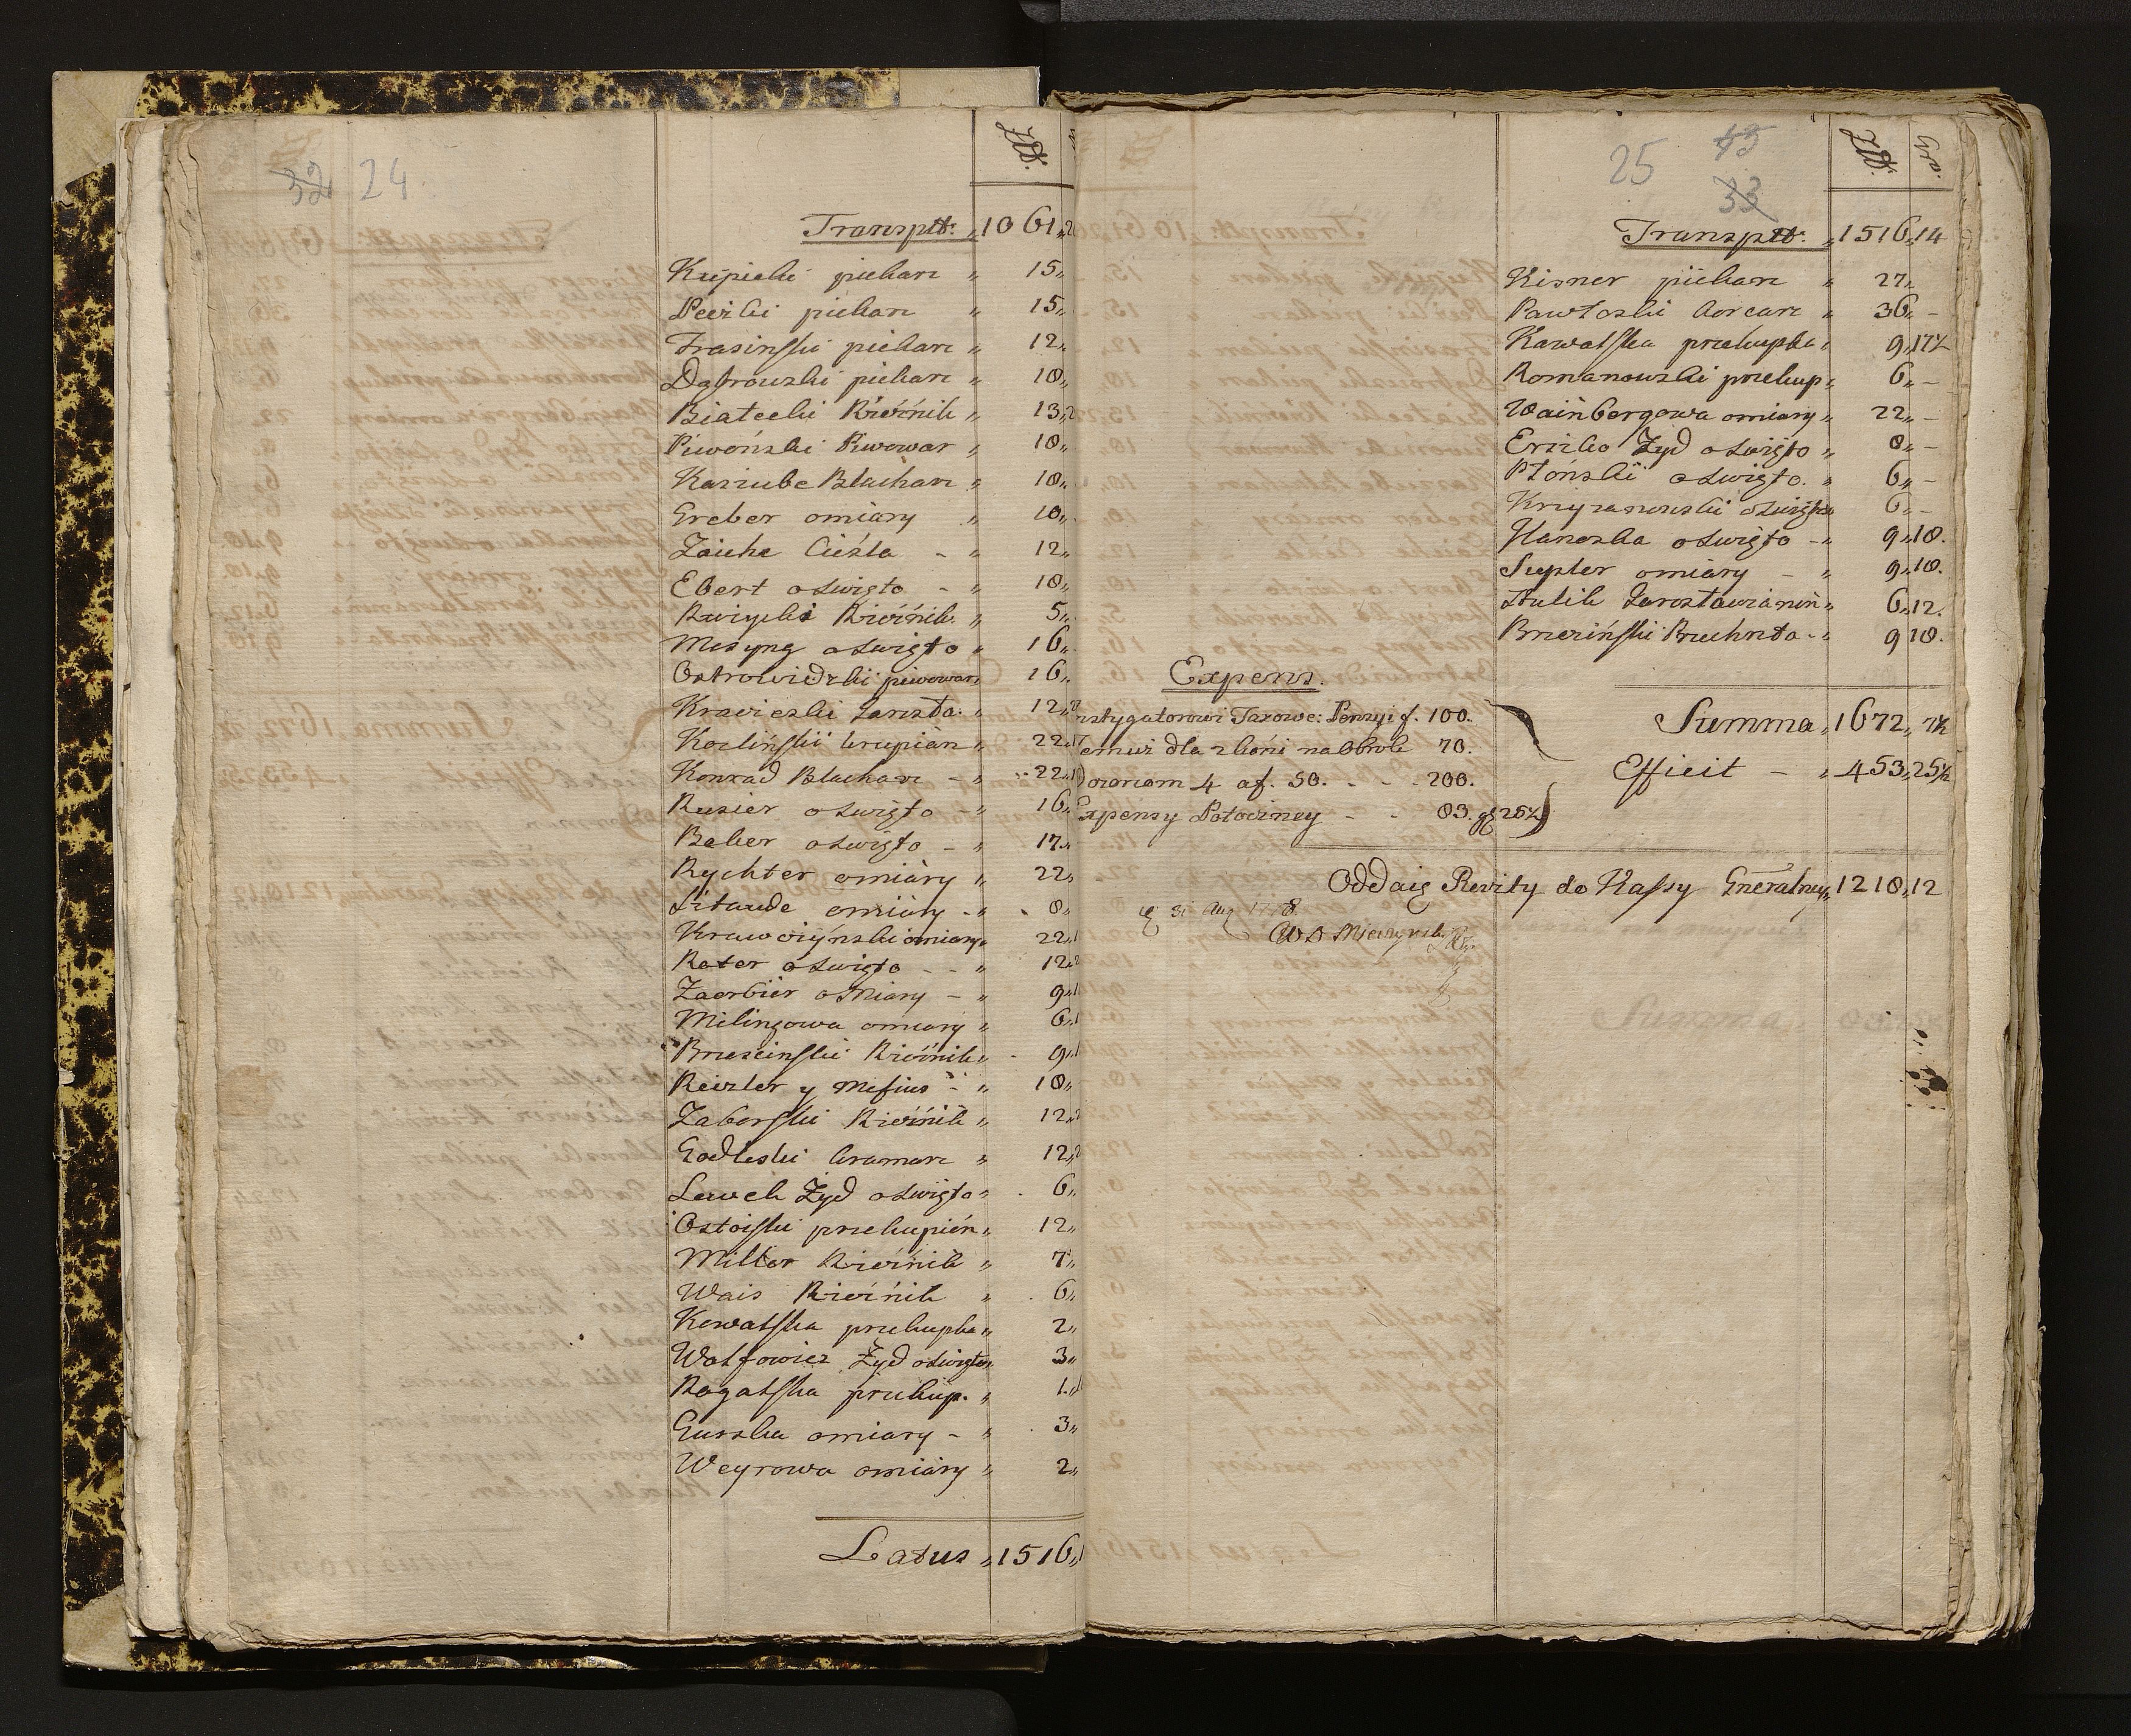 32 24.
Złł.
Transptt: „ 1061„2
Kupiecki piekarz „ 15„
Pecizki piekarz „ 15„
Jrasinski piekarz „ 12„
Dąbrowski piekarz „ 18„
Białecki Rzeźnik „ 13„2
Piwoński Piwowar „ 18„
Kasziube Blacharz „ 18„
Greber o miary „ 18„
Zaicke Cieśla - „ 12„
Ebert o święto - „ 18„
Rzeźnik „ 5„
Mesyng o święto „ 16„
Ostrowidzki piwowar „ 16„
Krawiecki Zarosta. „ 12„
Kozliński krupiarz „ 22„
Konrad Blacharz - „ 22„
Rusier o święto - „ 16„
Beker o święto - „ 17„
Rychter o miary „ 22„
Sztaude o miary - „ 8„
Krawczyński o miary „ 22„
Reter o święto - - „ 12„
Zaerbier o Miary - „ 9„
Milingowa o miary „ 6„
Bruszinski Rzeźnik „ 9„
Reizler y Mesius - „ 18„
Zaborski Rzeźnik „ 12„
Godleski kramarz „ 12„
Lewek Żyd o święto „ 6„
Ostoiski przekupień „ 12„
Miller Rzeźnik „ 7„
Wais Rzeźnik „ 6„
Kowalska przekupka „ 2„
Wolfowicz Żyd o święto „ 3„
Rogalska przekup. „ 1„
Guzska o miary - „ 3„
Weyrowa o miary „ 2„
Latus „ 1516„
25 43
33
Złł. Gro.
Transptt: „ 1516„14
Kisner piekarz „ 27„
Pawłoski korcarz „ 36„ -
Kawalska przekupka „ 9„17½
Romanowski przekup „ 6„ -
Wainbergowa o miary „ 22„ -
Erziko Żyd o święto „ 8„ -
Płoński o święto. „ 6„ -
Krzyzanowski o święto „ 6„ -
Haneska o święto - „ 9„18.
Supler o miary - „ 9„18.
Stulik Zarosławianin „ 6„12.
Brzeziński Bruchnta - „ 9 18.
Expens.
nstygatorowi Taxowe: Pensyi f. 100.
dla z koni na Obrok 70.
Dozorcom 4 af. 50. - - 200.
Expensy Potoczney - - 83. gs 25½
Summa „ 1672„ 7½
Efficit - „ 453„25½
Oddaię Reszty do Kassy Gneralney „ 1218„12
31 Aug 1778